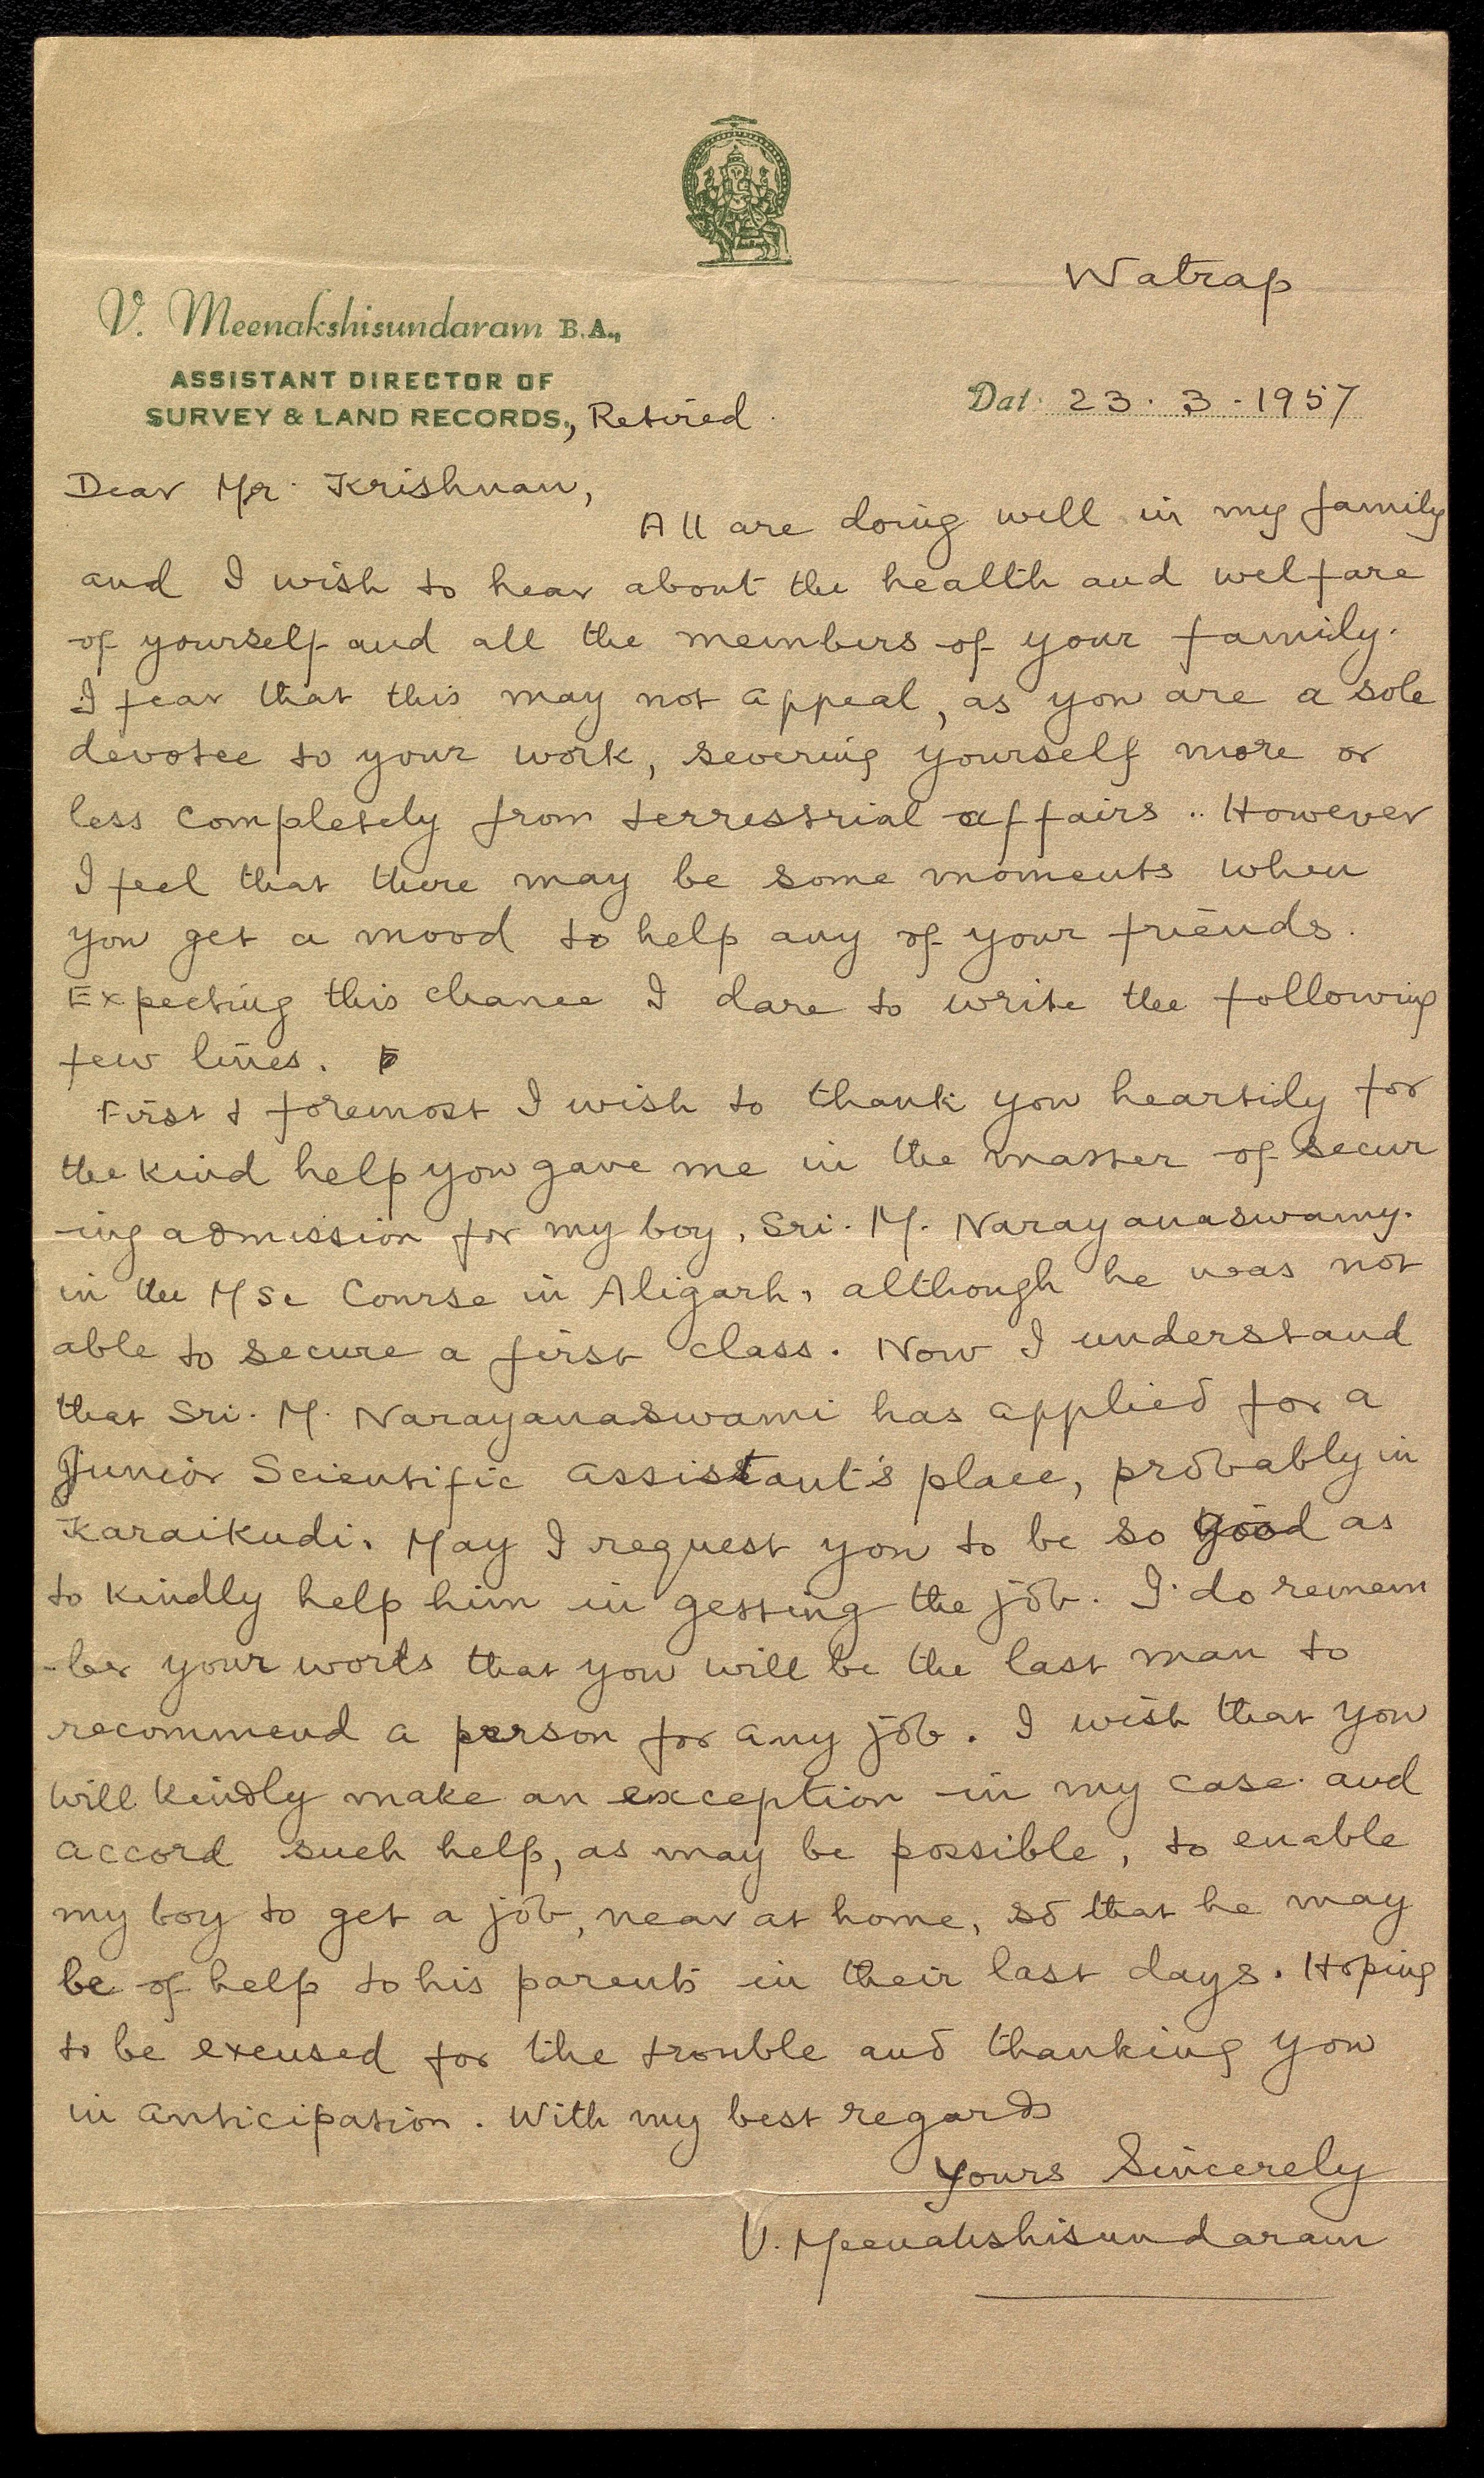 Watrap
V. Meenakshisundaram B.A.,
ASSISTANT DIRECTOR OF
SURVEY & LAND RECORDS., Retired.
Dat. 23. 3. 1957
Dear Mr. Krishnan,
All are doing well in my family
and I wish to hear about the health and welfare
of yourself and all the members of your family.
I fear that this may not appeal, as you are a sole
devotee to your work, severing yourself more or
less completely from terrestrial affairs.. However
I feel that there may be some moments when
you get a mood to help any of your friends.
Expecting this chance I dare to write the following
few lines.
First & foremost I wish to thank you heartily for
the kind help you gave me in the matter of secur
-ing admission for my boy, Sri. M. Narayanaswamy.
in the MSc Course in Aligarh, although he was not
able to secure a first class. Now I understand
that Sri. M. Narayanaswami has applied for a
Junior Scientific assistant's place, probably in
Karaikudi. May I request you to be so good as
to kindly help him in getting the job. I do remem
-ber your words that you will be the last man to
recommend a person for any job. I wish that you
will kindly make an exception in my case and
accord such help, as may be possible, to enable
my boy to get a job, near at home, so that he may
be of help to his parents in their last days. Hoping
to be excused for the trouble and thanking you
in anticipation. With my best regards
Yours Sincerely
V. Meenakshisundaram